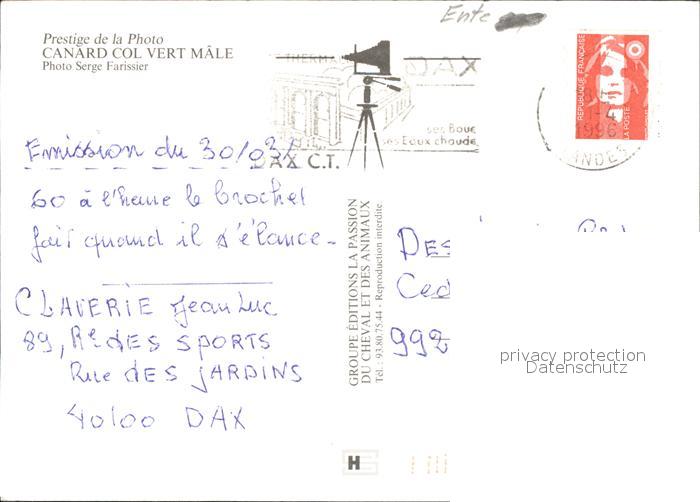 Ente
Prestige de la Photo
CANARD COL VERT MÂLE
Photo Serge Farissier
THERMA DAX
ses Boue
ses Eaux chaude
DAX C.T.
RÉPUBLIQUE FRANÇAISE
LA POSTE
1996
LANDES
Emission du 30/03/
60 à l'heure le Brochet
fait quand il s'élance-
CLAVERIE Jean Luc
89, Rce DES SPORTS
Rue DES JARDINS
40100 DAX
GROUPE ÉDITIONS LA PASSION
DU CHEVAL ET DES ANIMAUX
Tél.: 93.80.75.44 - Reproduction interdite
DES
Ced
992
privacy protection
Datenschutz
H